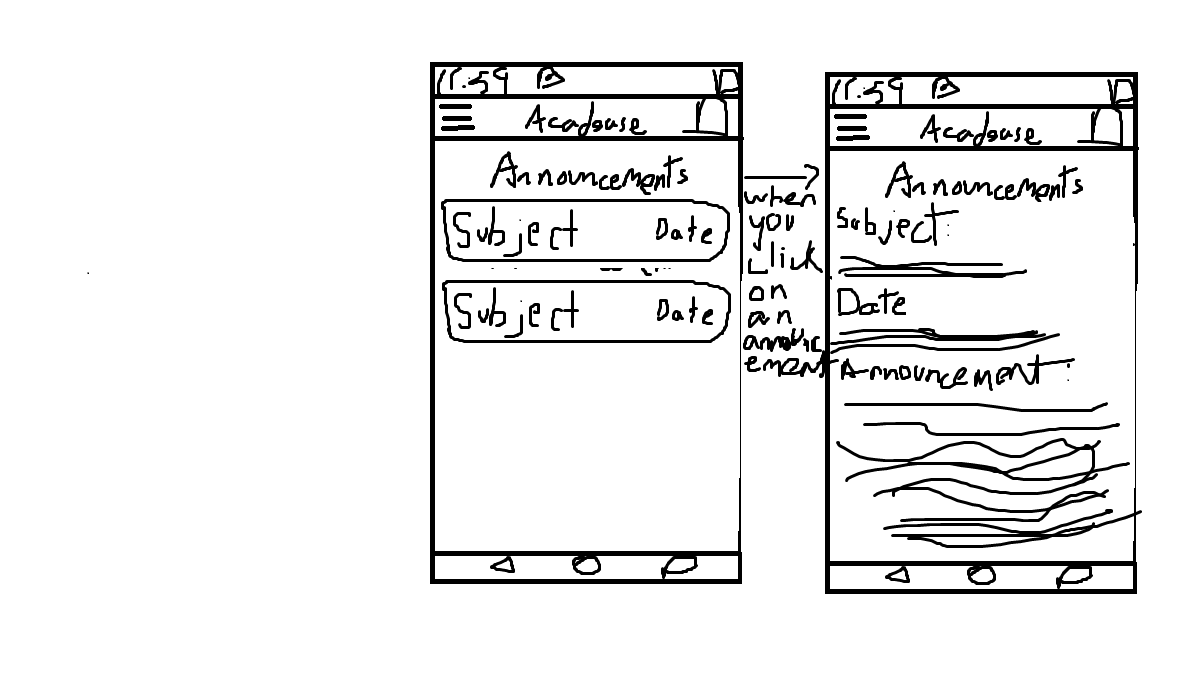 11:59
Acadouse
Announcements
Subject Date
Subject Date
when
you
click
on
an
announcement
11:59
Acadouse
Announcements
Subject:
Date
Announcement: